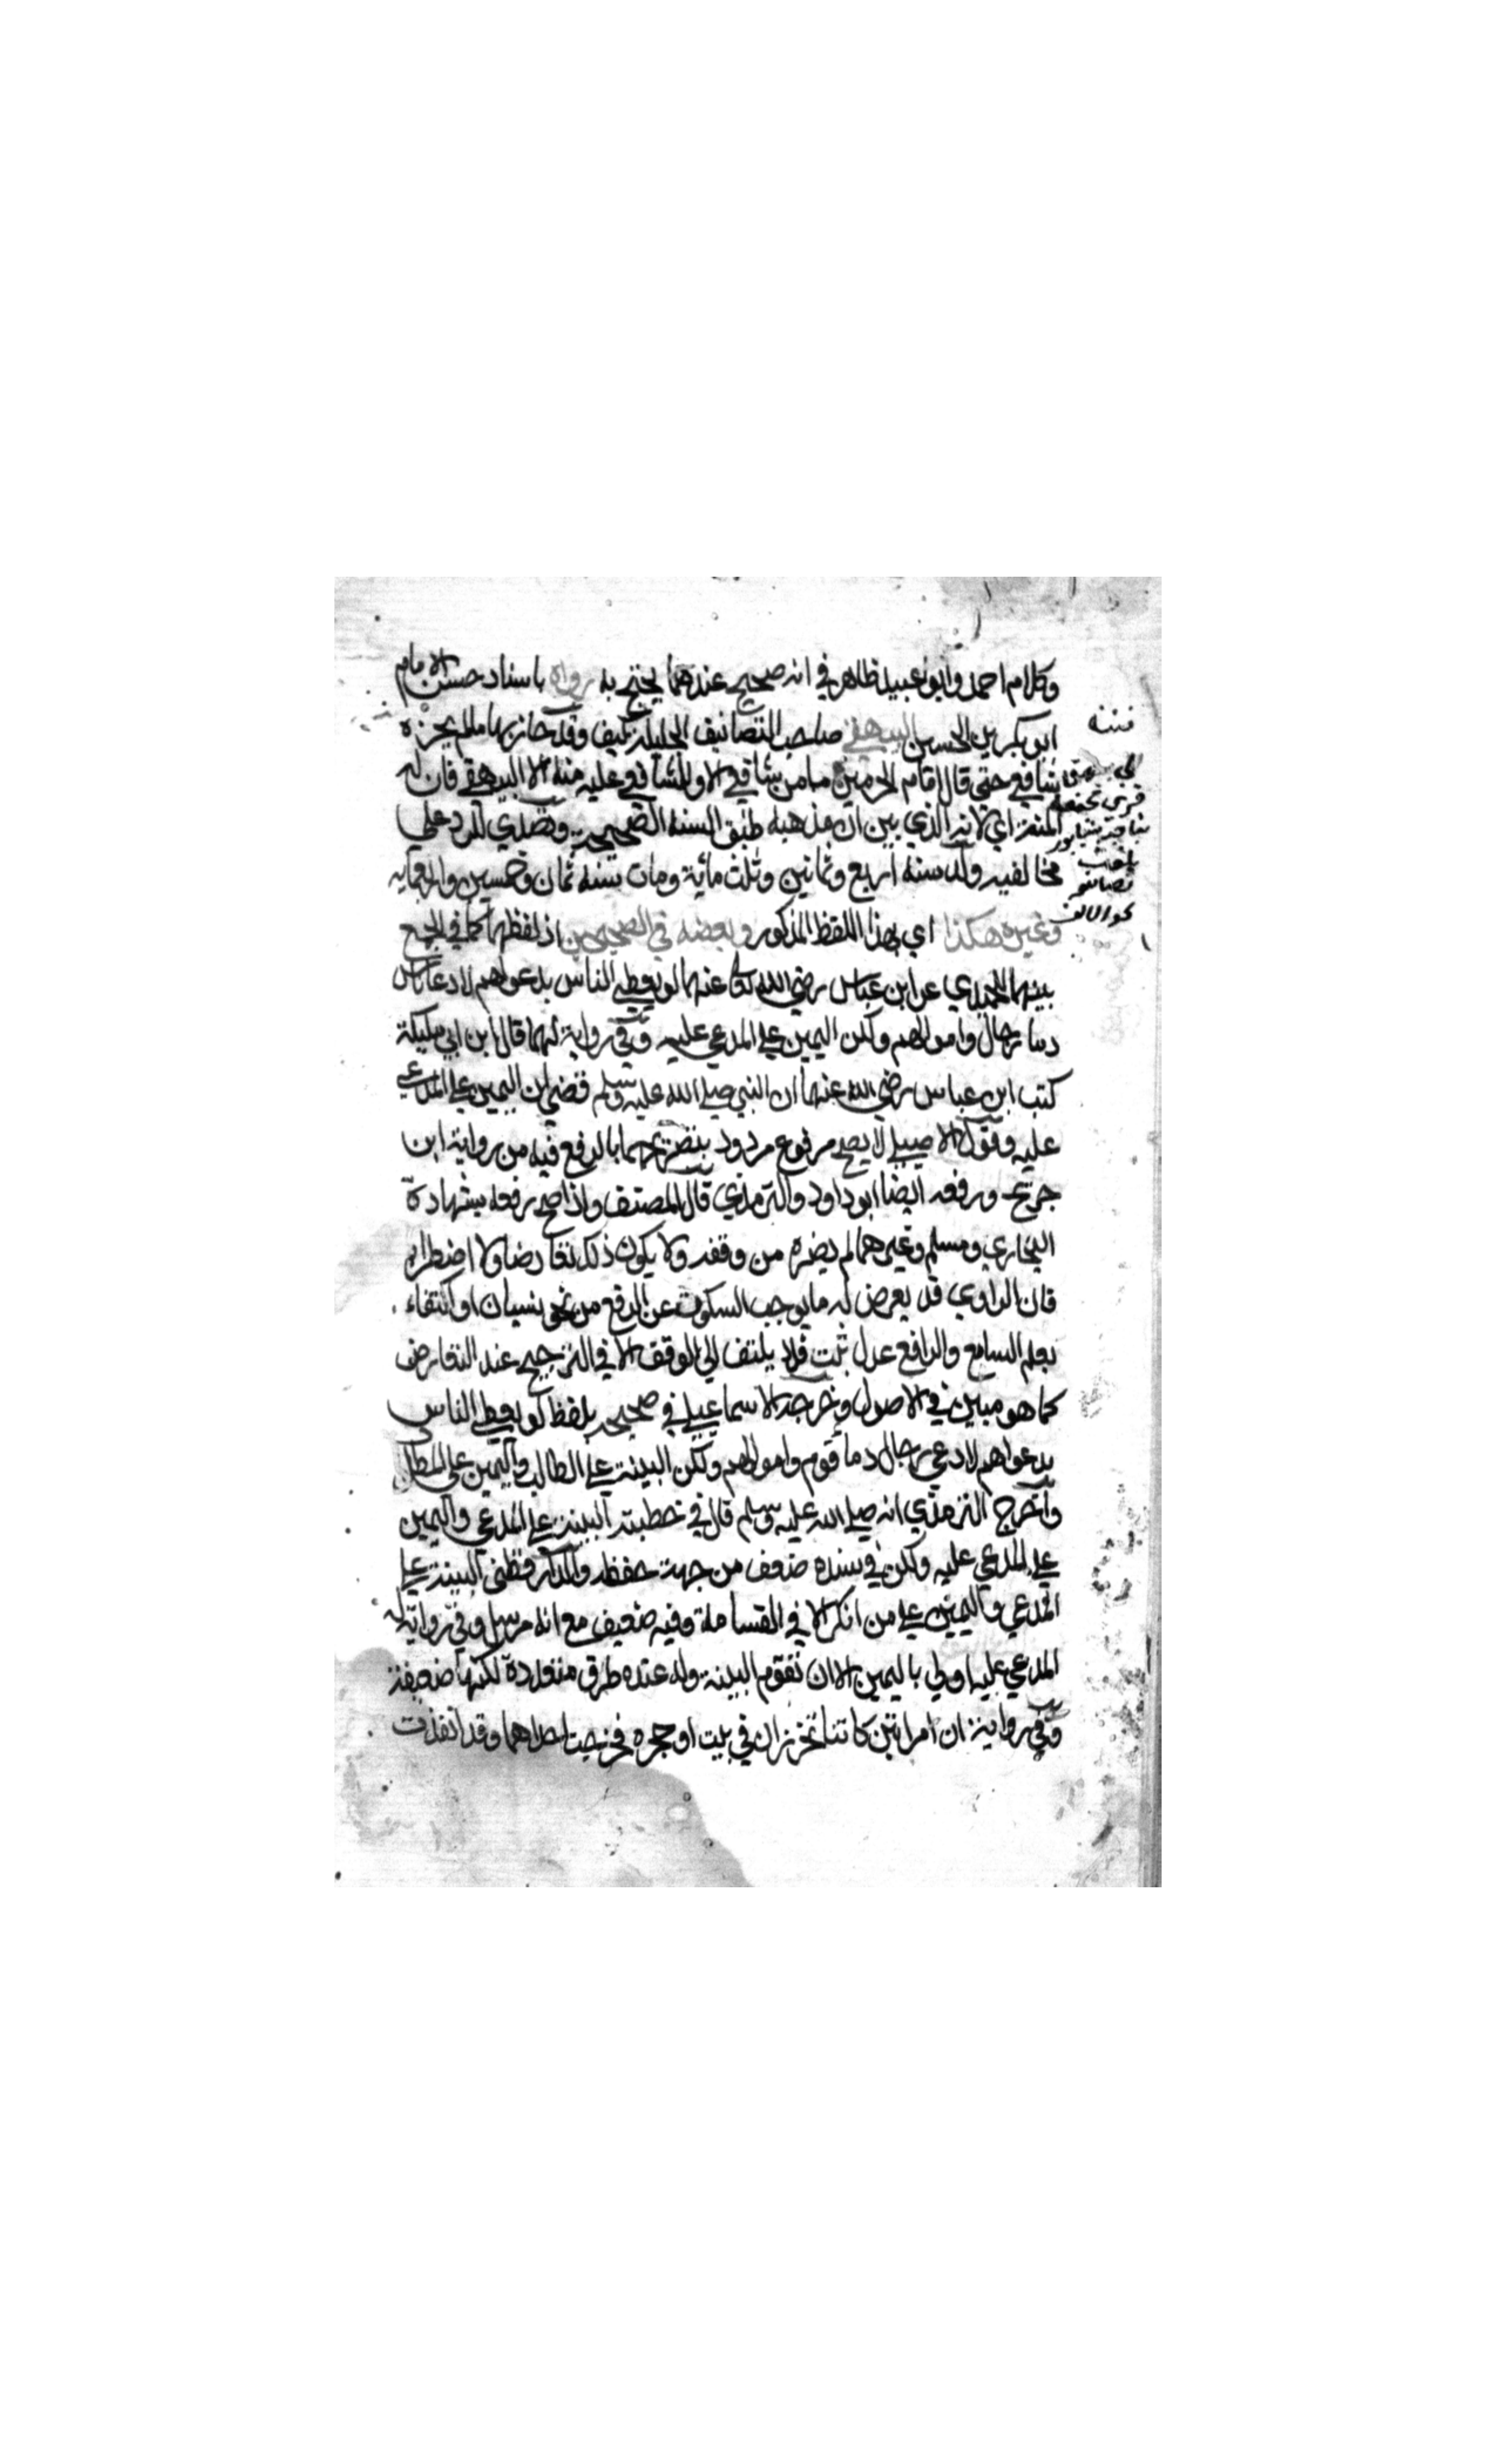 وكلام احمد وابو عبيد ظاهر في انه صحيح عندهما يحتج به رواه باسناد حسن الامام
ابو بكر بن الحسين البيهقي صاحب التصانيف الجليلة كيف وقد حاز بها ما لم يحزه
شافعي حتى قال امام الحرمين ما من شافعي الا وللشافعي عليه منة الا البيهقي فان له
المنة اي لانه الذي بين ان مذهبه طبق السنة الصحيحة وتصدي للرد على
مخالفيه ولد سنة اربع وثمانين وثلث مائة ومات سنة ثمان وخمسين واربعمايه
وغيره هكذا اي بهذا اللفظ المذكور وبعضه في الصحيحين اذ لفظهما كما في الجمع
بينهما للحميدي عن ابن عباس رضي الله تعا عنهما لو يعطي الناس بدعواهم لادعا ناس
دما رجال وامولهم ولكن اليمين علي المدعي عليه وفي رواية لهما قال ابن ابي مليكة
كتب ابن عباس رضي الله عنهما ان النبي صلي الله عليه وسلم قضي ان اليمين علي المدعي
عليه وقول الاصيلي لا يصح مرفوع مردود بتصريحهما بالرفع فيه من رواية ابن
جريج ورفعه ايضا ابو داود والترمذي قال المصنف واذا صح رفعه بشهادة
البخاري ومسلم وغيرهما لم يضره من وقفه ولا يكون ذلك تعارضا ولا اضطراب
فان الراوي قد يعرض له ما يوجب السكوت عن الرفع من نحو نسيان او اكتفاء
بعلم السامع والرافع عدل ثبت فلا يلتفت الي الوقف الا في الترجيح عند التعارض
كما هو مبين في الاصول وخرجه الاسماعيلي في صحيحه بلفظ لو يعطي الناس
بدعواهم لادعي رجال دما قوم وامولهم ولكن البينة علي الطالب واليمين علي المطلوب
واخرج الترمذي انه صلي الله عليه وسلم قال في خطبته البينة علي المدعي واليمين
علي المدعي عليه ولكن في سنده ضعف من جهة حفظه والدار قطني البينة علي
المدعي واليمين علي من انكر الا في القسامة وفيه ضعيف مع انه مرسل وفي رواية له
المدعي عليه اولي باليمين الا ان تقوم البينة وله عنده طرق متعددة لكنها ضعيفة
وفي رواية ان امراتين كانتا تخرزان في بيت او حجره فخرجت احداهما وقد انفذت